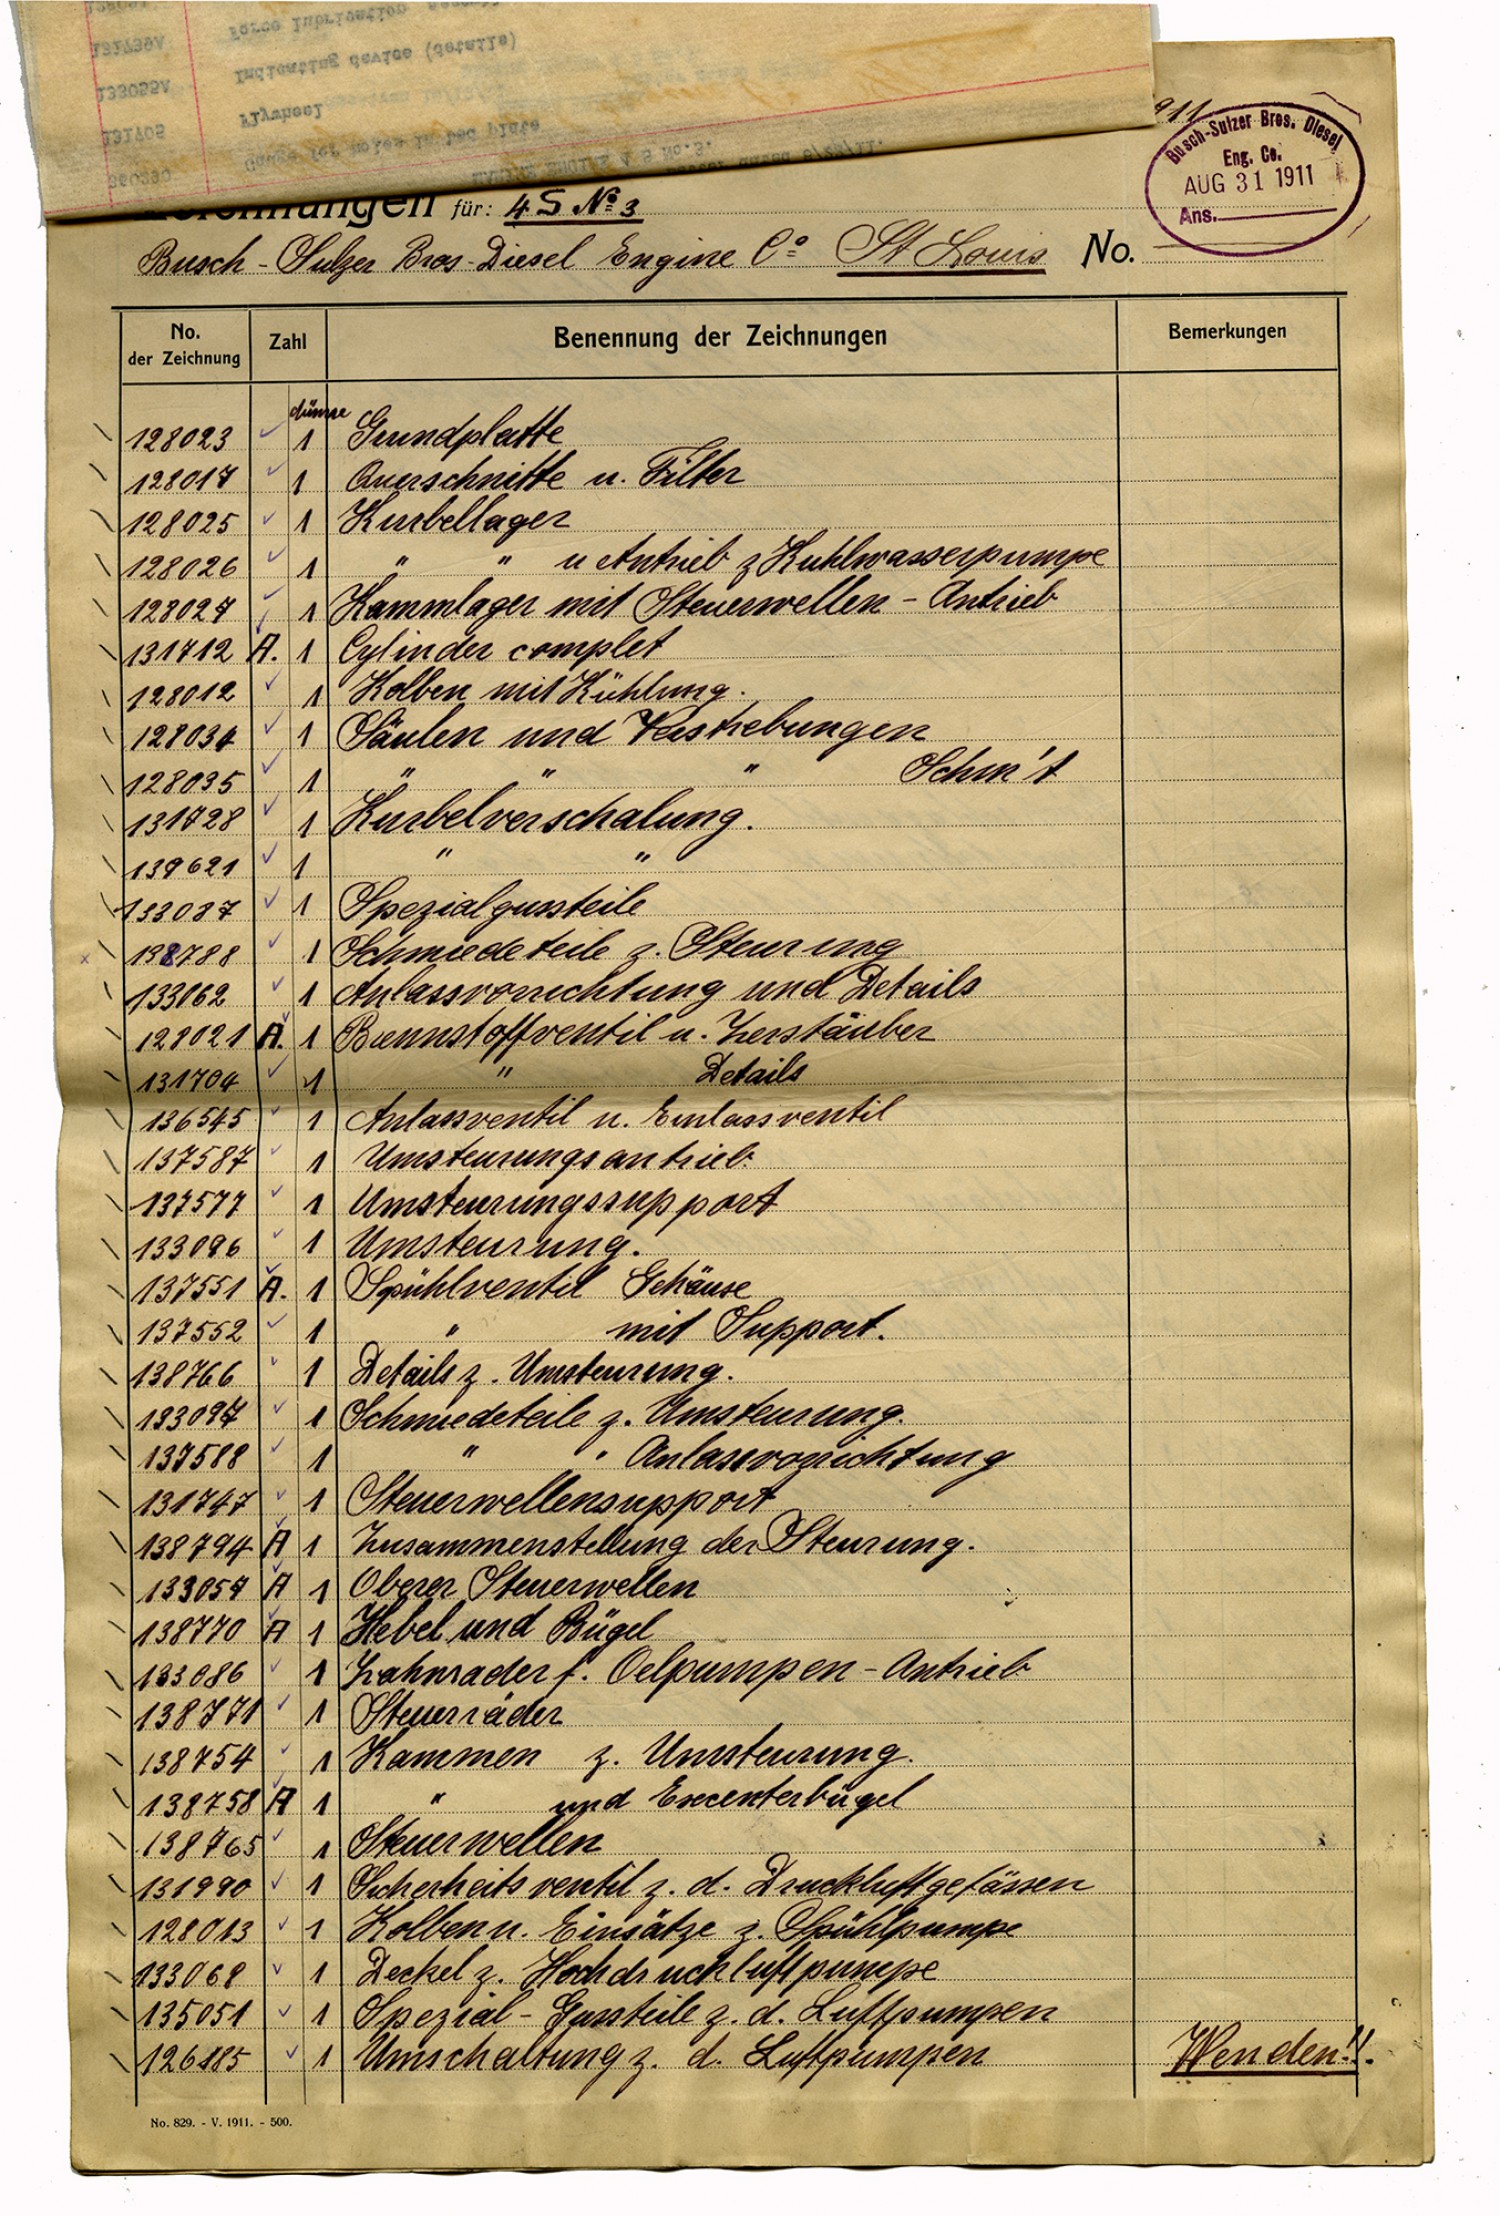 133055A Indicating device (details)
131705 Flywheel
Gauge for holes in bed plate
911
Busch-Sulzer Bros. Diesel
Eng. Co.
AUG 31 1911
Ans.
für: 4 S No 3
Busch - Sulzer Bros - Diesel Engine Co St Louis No.
No. der Zeichnung Zahl Benennung der Zeichnungen Bemerkungen
dünne
128023 1 Grundplatte
128017 1 Querschnitte u. Filter
128025 1 Kurbellager
128026 1 " " u Antrieb z Kuhlwasserpumpe
128027 1 Kammlager mit Steuerwellen - Antrieb
131712 A. 1 Cylinder complet
128012 1 Kolben mit Kühlung.
128034 1 Säulen und Verstrebungen
128035 1 " " " Schn't
131728 1 Kurbelverschalung.
139621 1 " "
133087 1 Spezialgussteile
138788 1 Schmiedeteile z. Steurung
133062 1 Anlassvorrichtung und Details
128021 A. 1 Brennstoffventil u. Zerstäuber
131704 1 " Details
136545 1 Anlassventil u. Einlassventil
137587 1 Umsteurungsantrieb.
137577 1 Umsteurungssupport
133096 1 Umsteurung.
137551 A. 1 Spühlventil Gehäuse
137552 1 " mit Support.
138766 1 Details z. Umsteurung.
133097 1 Schmiedeteile z. Umsteurung.
137588 1 " " Anlassvorrichtung
131747 1 Steuerwellensupport
138794 A 1 Zusammenstellung der Steurung.
133057 A 1 Oberer Steuerwellen
138770 A 1 Hebel und Bügel
133086 1 Zahnrader f. Oelpumpen - Antrieb
138771 1 Steuerräder
138754 1 Kammen z. Umsteurung.
138758 A 1 " und Excenterbügel
138765 1 Steuerwellen
131990 1 Sicherheitsventil z. d. Druckluftgefässen
128013 1 Kolben u. Einsätze z. Spühlpumpe
133068 1 Deckel z. Hochdruckluftpumpe
135051 1 Spezial - Gussteile z. d. Luftpumpen
126185 1 Umschaltung z. d. Luftpumpen Wenden!!.
No. 829. - V. 1911. - 500.